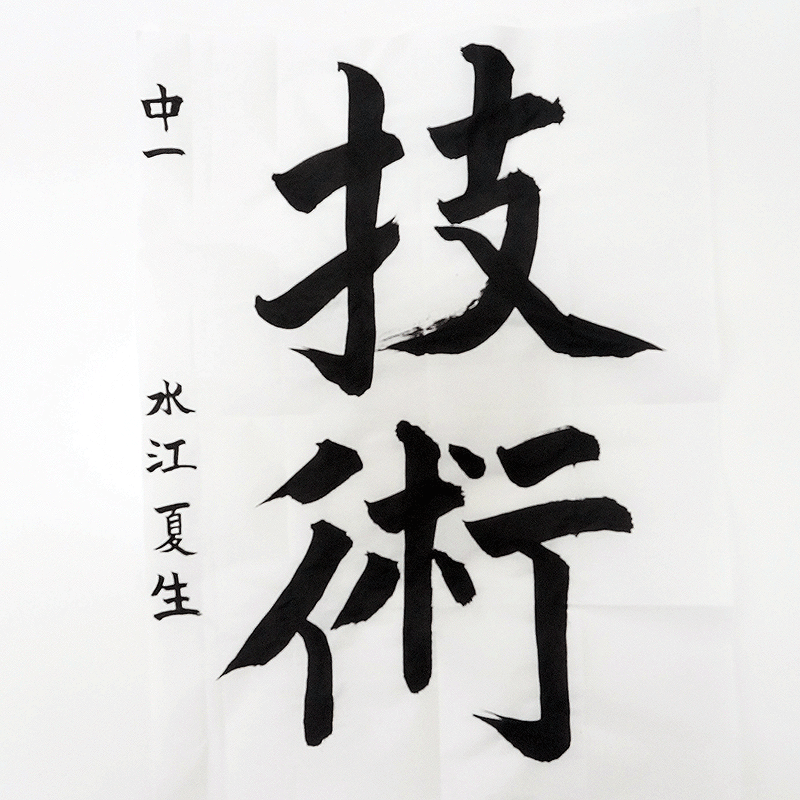 技術
中一 水江夏生